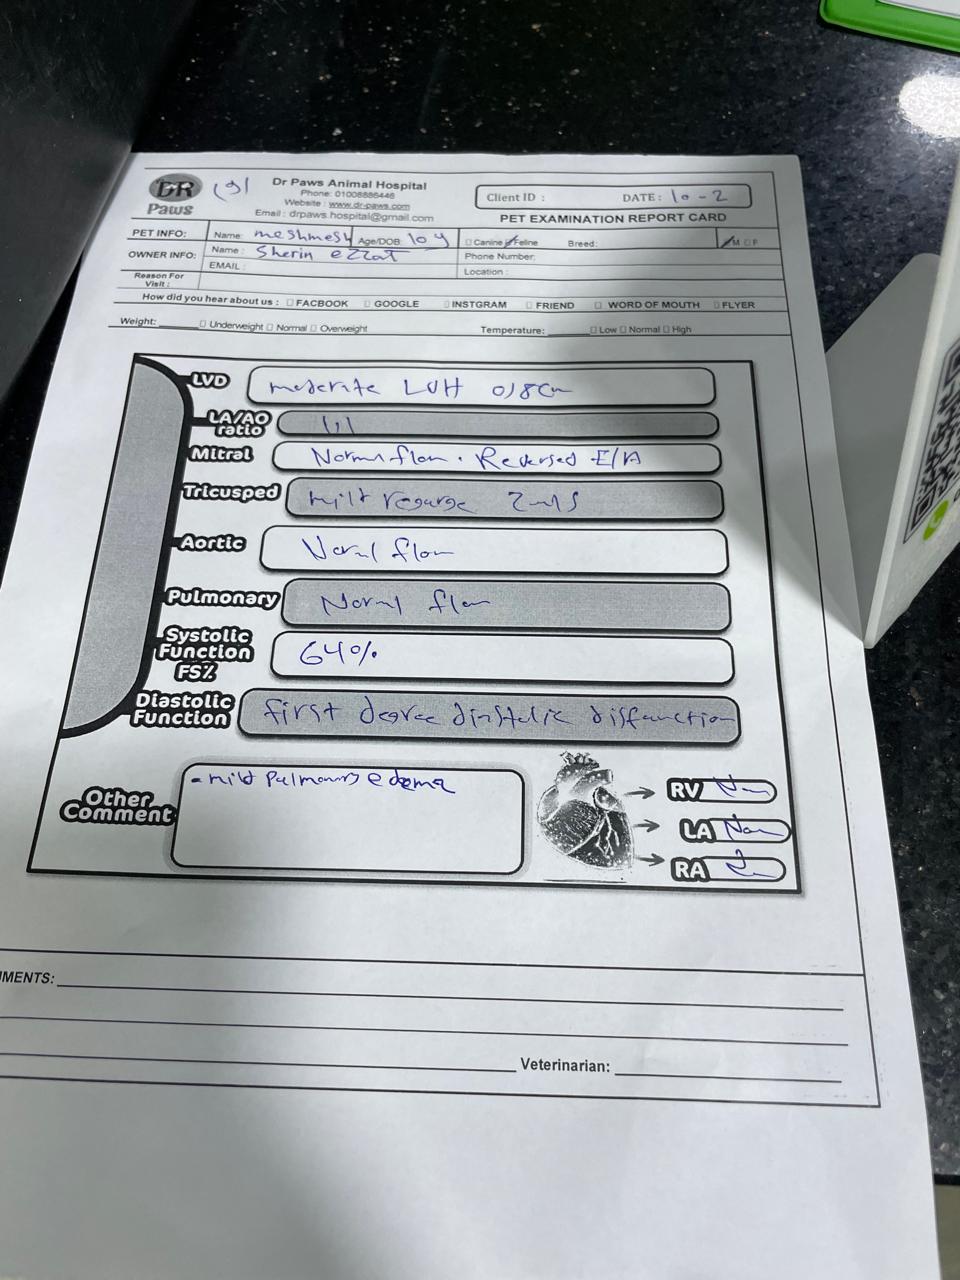 DR
Paws
Dr Paws Animal Hospital
Phone: 01008886446
Website : www.dr-paws.com
Email : drpaws.hospital@gmail.com
Client ID : DATE: 10-2
PET EXAMINATION REPORT CARD
PET INFO: Name: meshmesh Age/DOB: 10 y Canine Feline Breed: M F
OWNER INFO: Name : Sherin ezzat Phone Number:
EMAIL : Location :
Reason For
Visit :
How did you hear about us : FACBOOK GOOGLE INSTGRAM FRIEND WORD OF MOUTH FLYER
Weight: Underweight Normal Overweight Temperature: Low Normal High
LVD moderite LVH 0,8cm
LA/AO
ratio 1,1
Mitral Normal flow . Reversed E/A
Tricusped mild regurge 2m/s
Aortic Normal flow
Pulmonary Normal flow
Systolic
Function
FS% 64%
Diastolic
Function first degree diastolic disfunction
Other
Comment - mild Pulmonary edema
RV
LA
RA
MENTS:
Veterinarian: